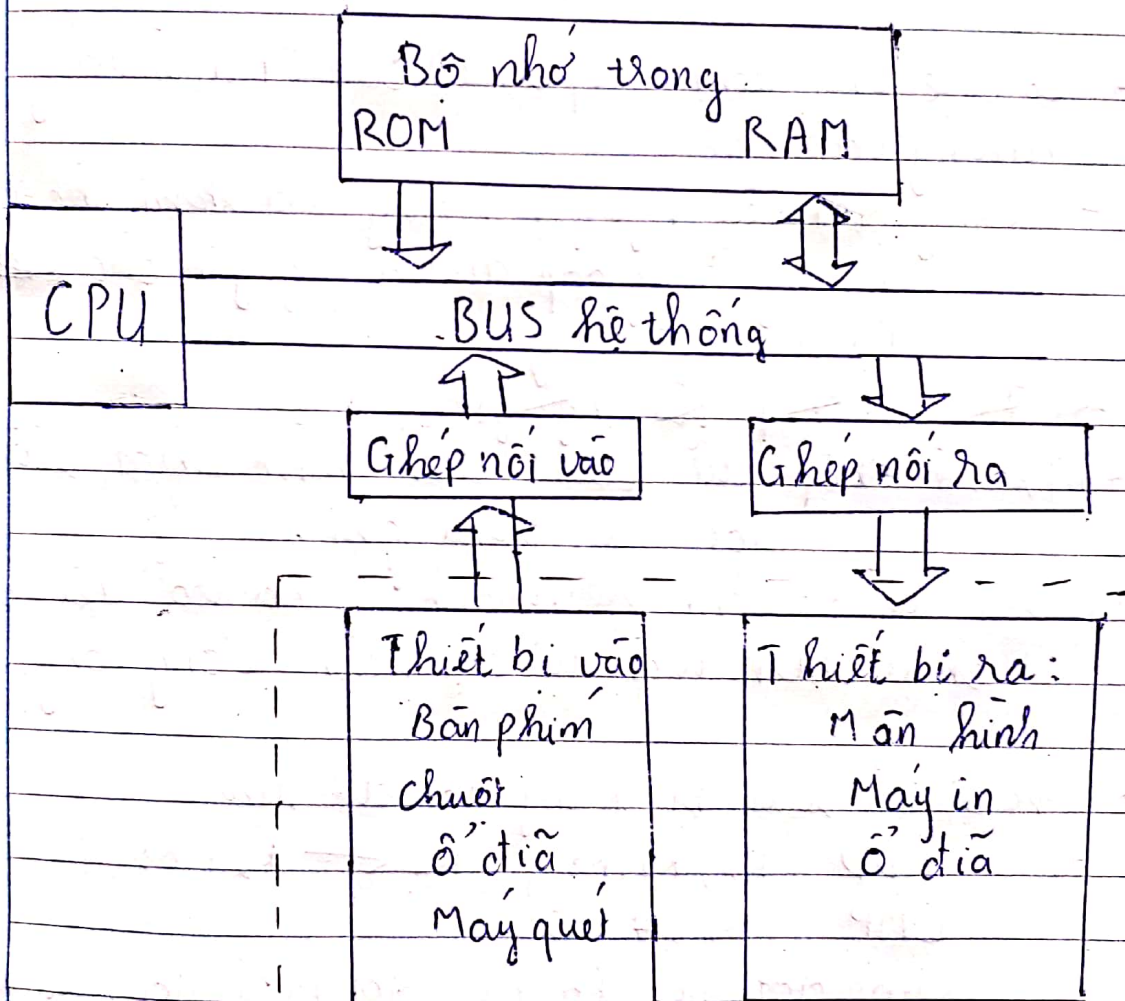 Bộ nhớ trong
ROM RAM
CPU
BUS hệ thống
Ghép nối vào
Ghép nối ra
Thiết bị vào
Bàn phím
Chuột
Ổ đĩa
Máy quét
Thiết bị ra:
Màn hình
Máy in
Ổ đĩa